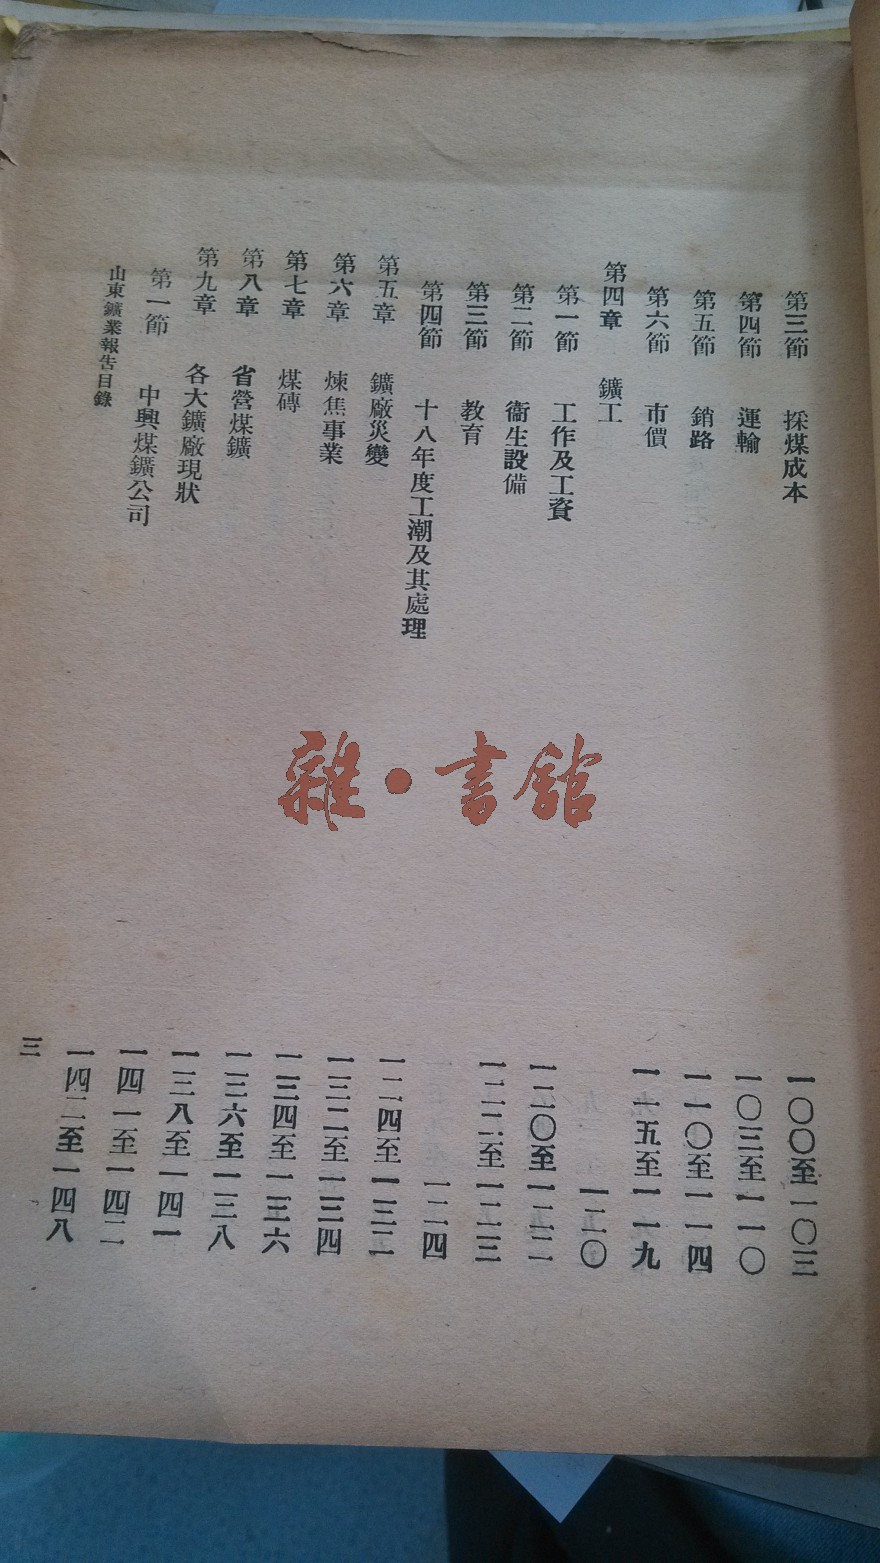 第三節 採煤成本 一〇〇至一〇三
第四節 運輸 一〇三至一一〇
第五節 銷路 一一〇至一一四
第六節 市價 一一五至一一九
第四章 鑛工 一二〇
第一節 工作及工資 一二〇至一二二
第二節 衞生設備 一二二至一二三
第三節 教育 一二四
第四節 十八年度工潮及其處理 一二四至一三二
第五章 鑛廠災變 一三二至一三四
第六章 煉焦事業 一三四至一三六
第七章 煤磚 一三六至一三八
第八章 省營煤鑛 一三八至一四一
第九章 各大鑛廠現狀 一四一至一四二
第一節 中興煤鑛公司 一四二至一四八
山東鑛業報告目錄 三
雜·書館